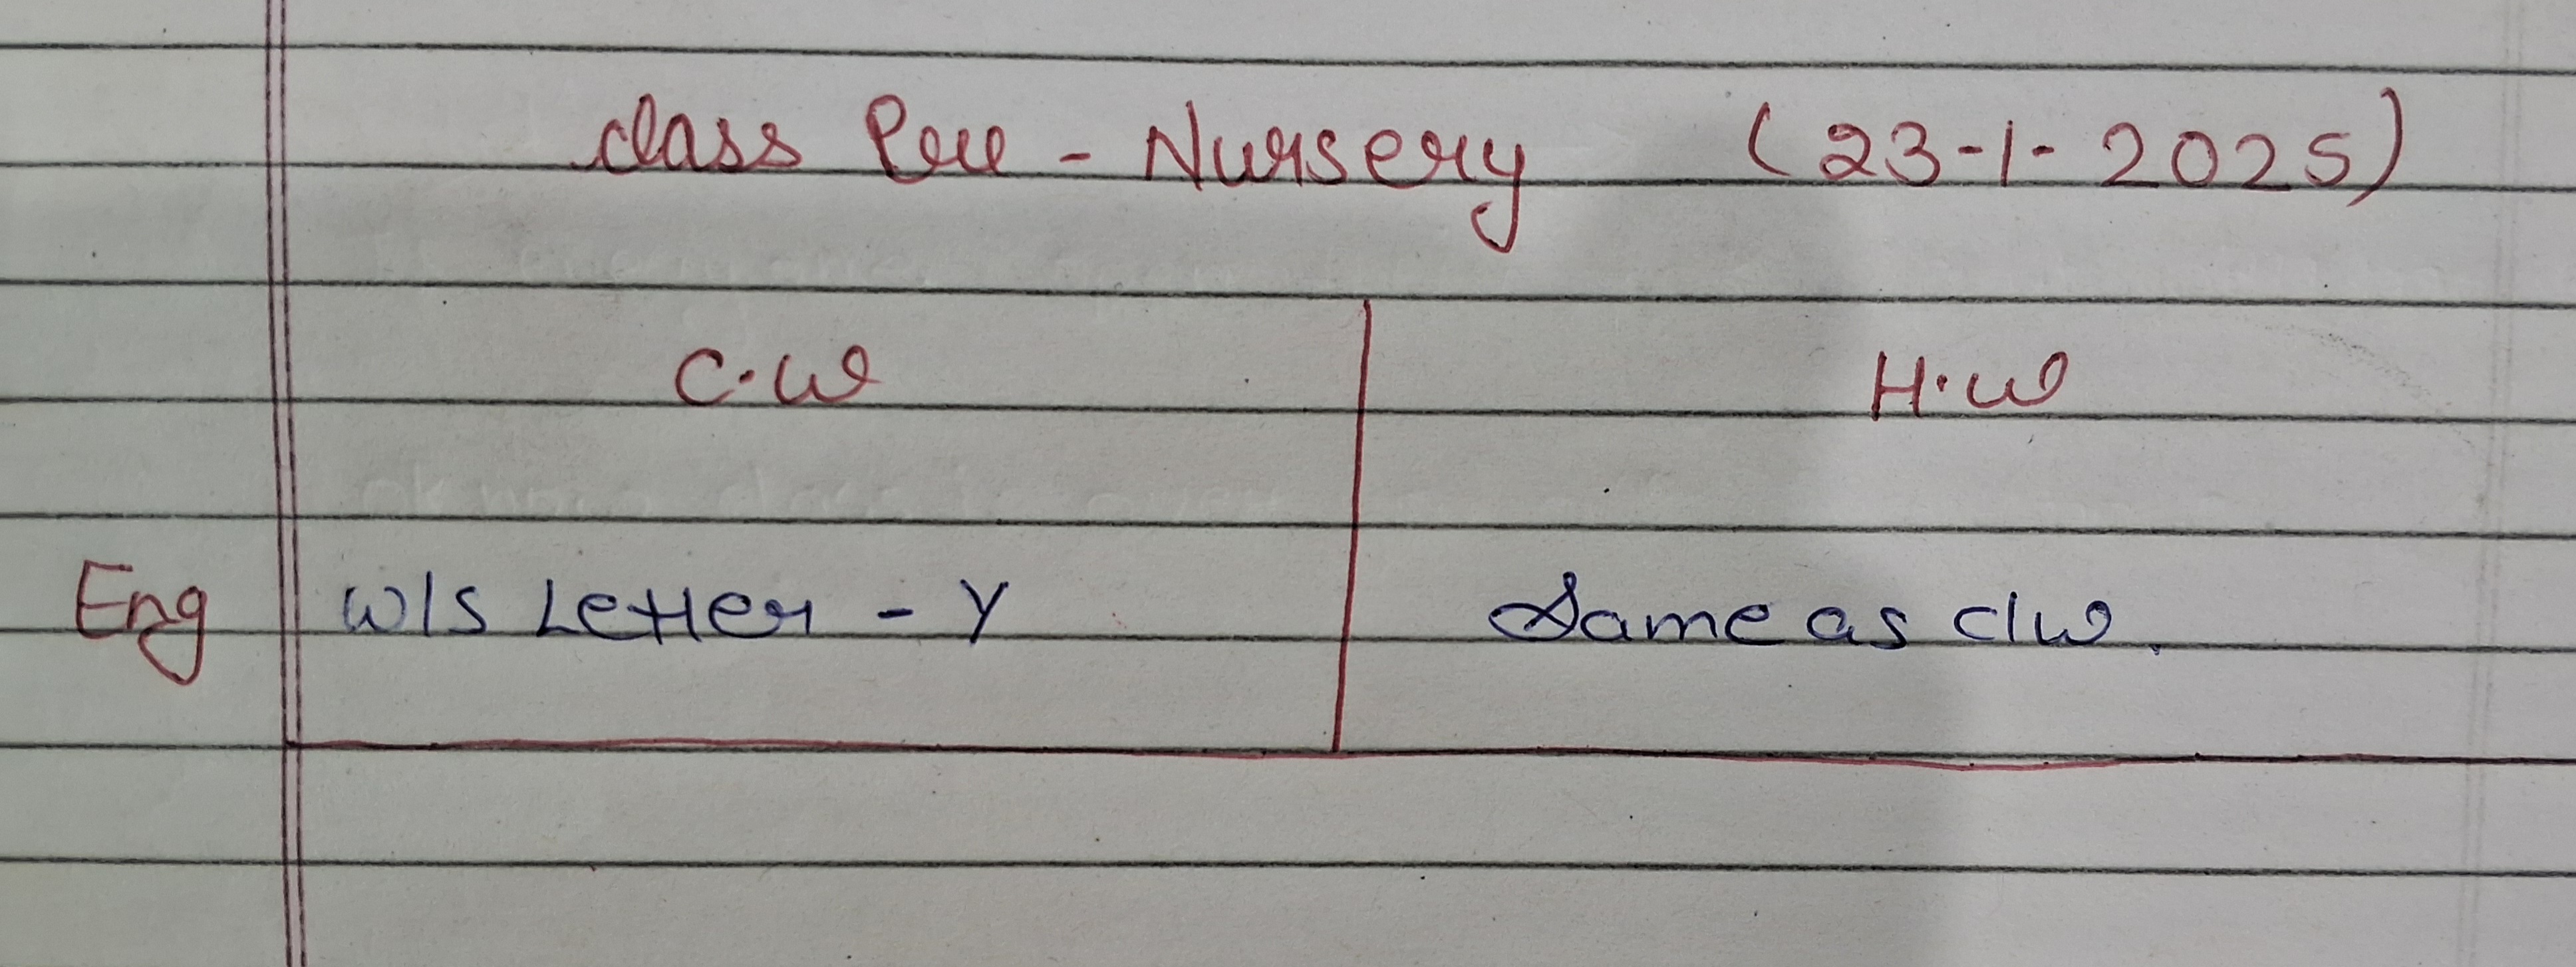 class Pre - Nursery (23-1-2025)
C.W H.W
Eng W/S Letter - Y Same as c/w.